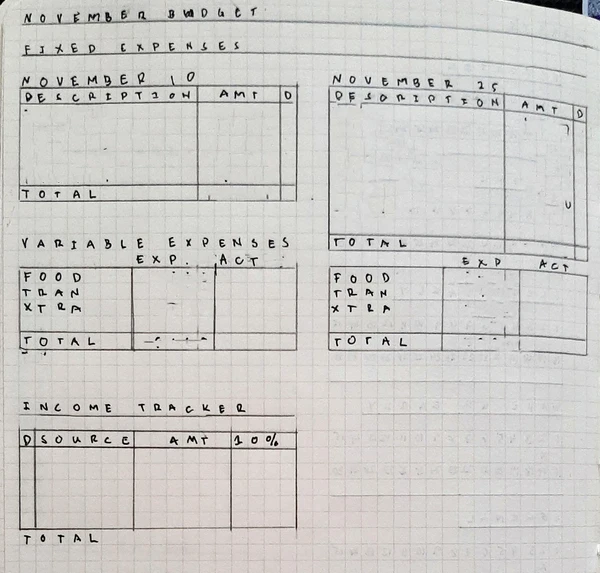 NOVEMBER BUDGET
FIXED EXPENSES
NOVEMBER 10
DESCRIPTION AMT D
TOTAL
NOVEMBER 25
DESCRIPTION AMT D
TOTAL
VARIABLE EXPENSES
EXP. ACT.
FOOD
TRAN
XTRA
TOTAL
EXP ACT
FOOD
TRAN
XTRA
TOTAL
INCOME TRACKER
D SOURCE AMT 10%
TOTAL